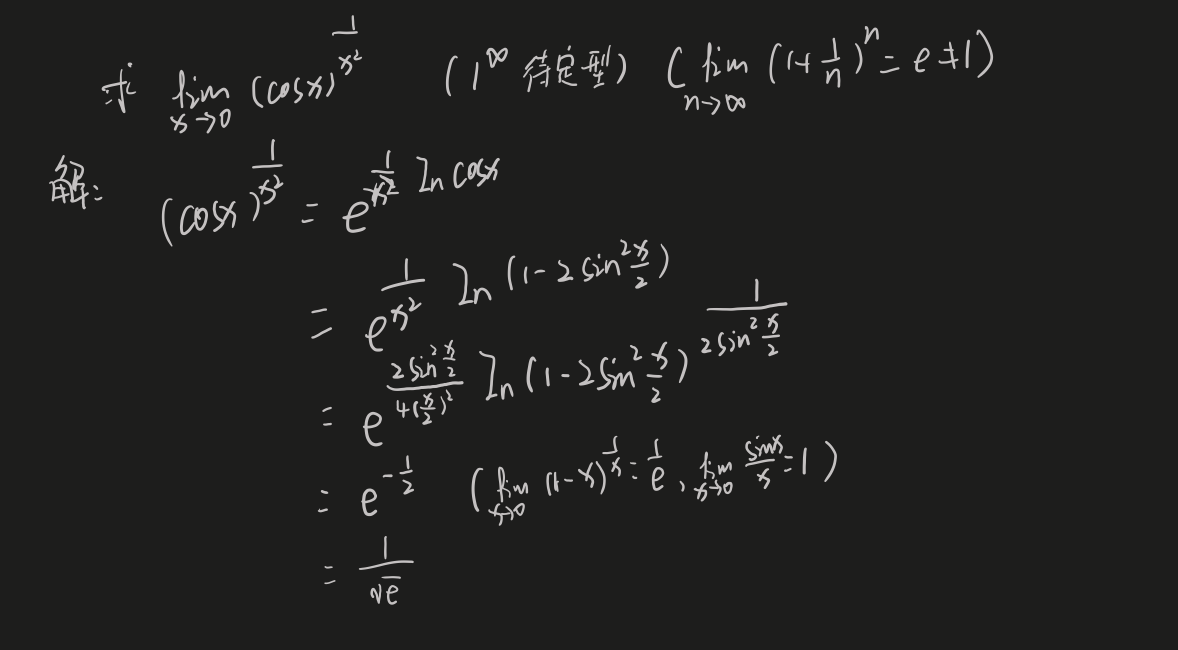 求 lim_{x→0} (cosx)^{1/x²} (1^∞ 待定型) (lim_{n→∞} (1+1/n)^n = e ≠ 1)
解: (cosx)^{1/x²} = e^{1/x² ln cosx}
= e^{1/x² ln(1-2sin²x/2)}
= e^{2sin²x/2 / 4(x/2)² ln(1-2sin²x/2)^{1/2sin²x/2}}
= e^{-1/2} (lim_{x→0} (1-x)^{1/x} = 1/e, lim_{x→0} sinx/x = 1)
= 1/√e